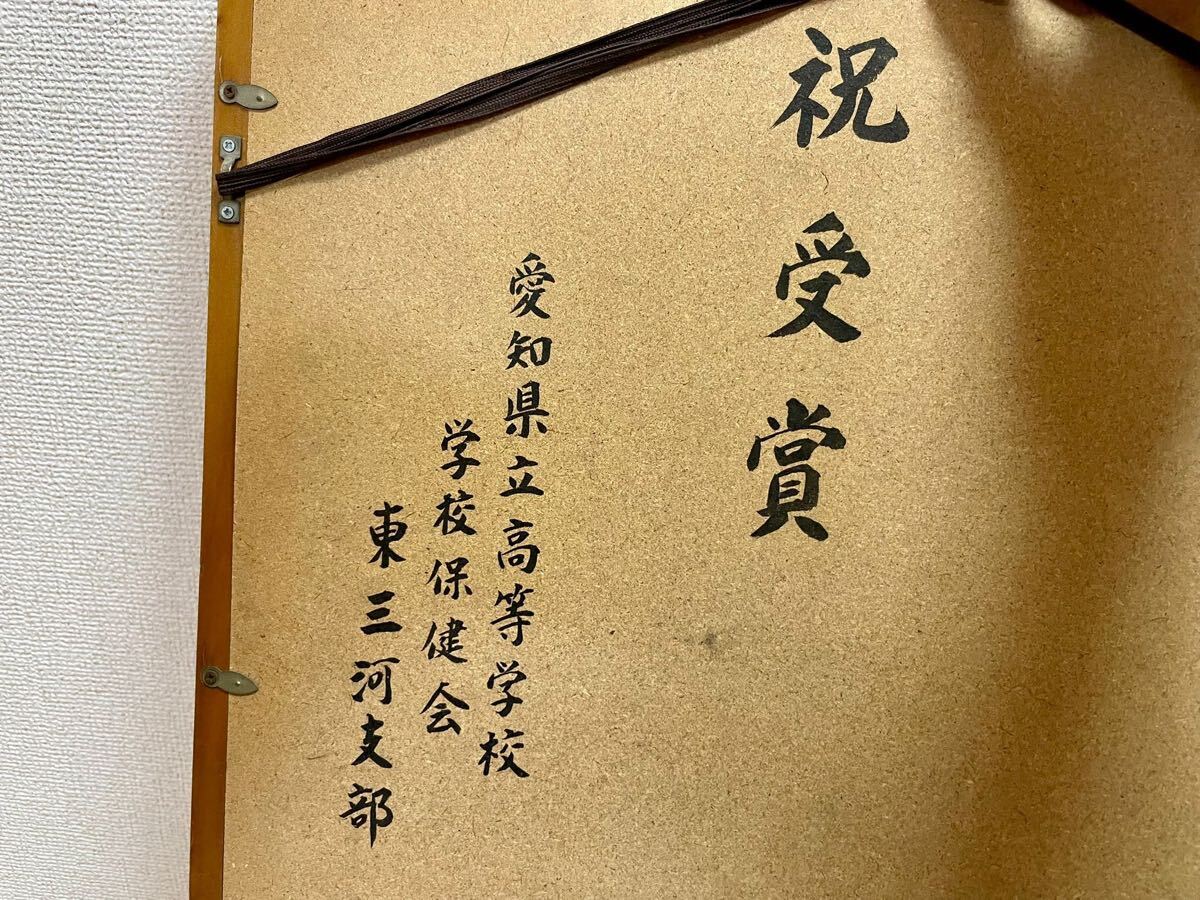 祝受賞
愛知県立高等学校
学校保健会
東三河支部